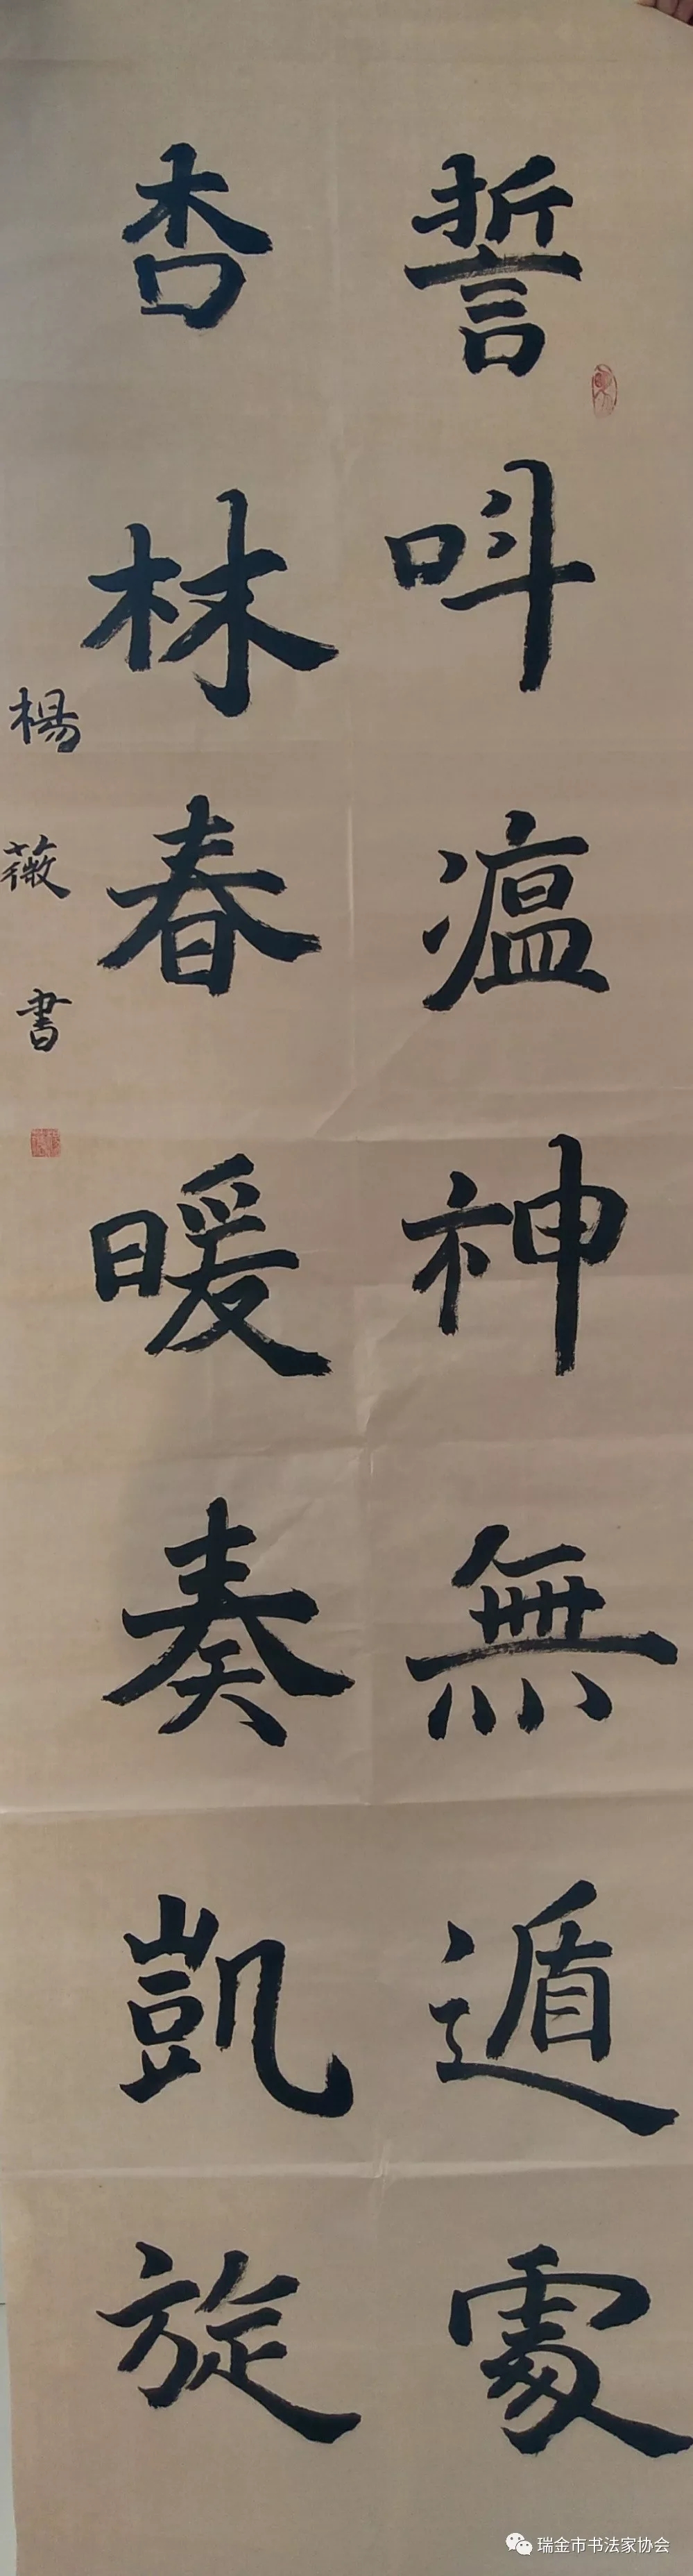 誓呌瘟神無遁處
杏林春暖奏凱旋
楊薇書
瑞金市书法家协会